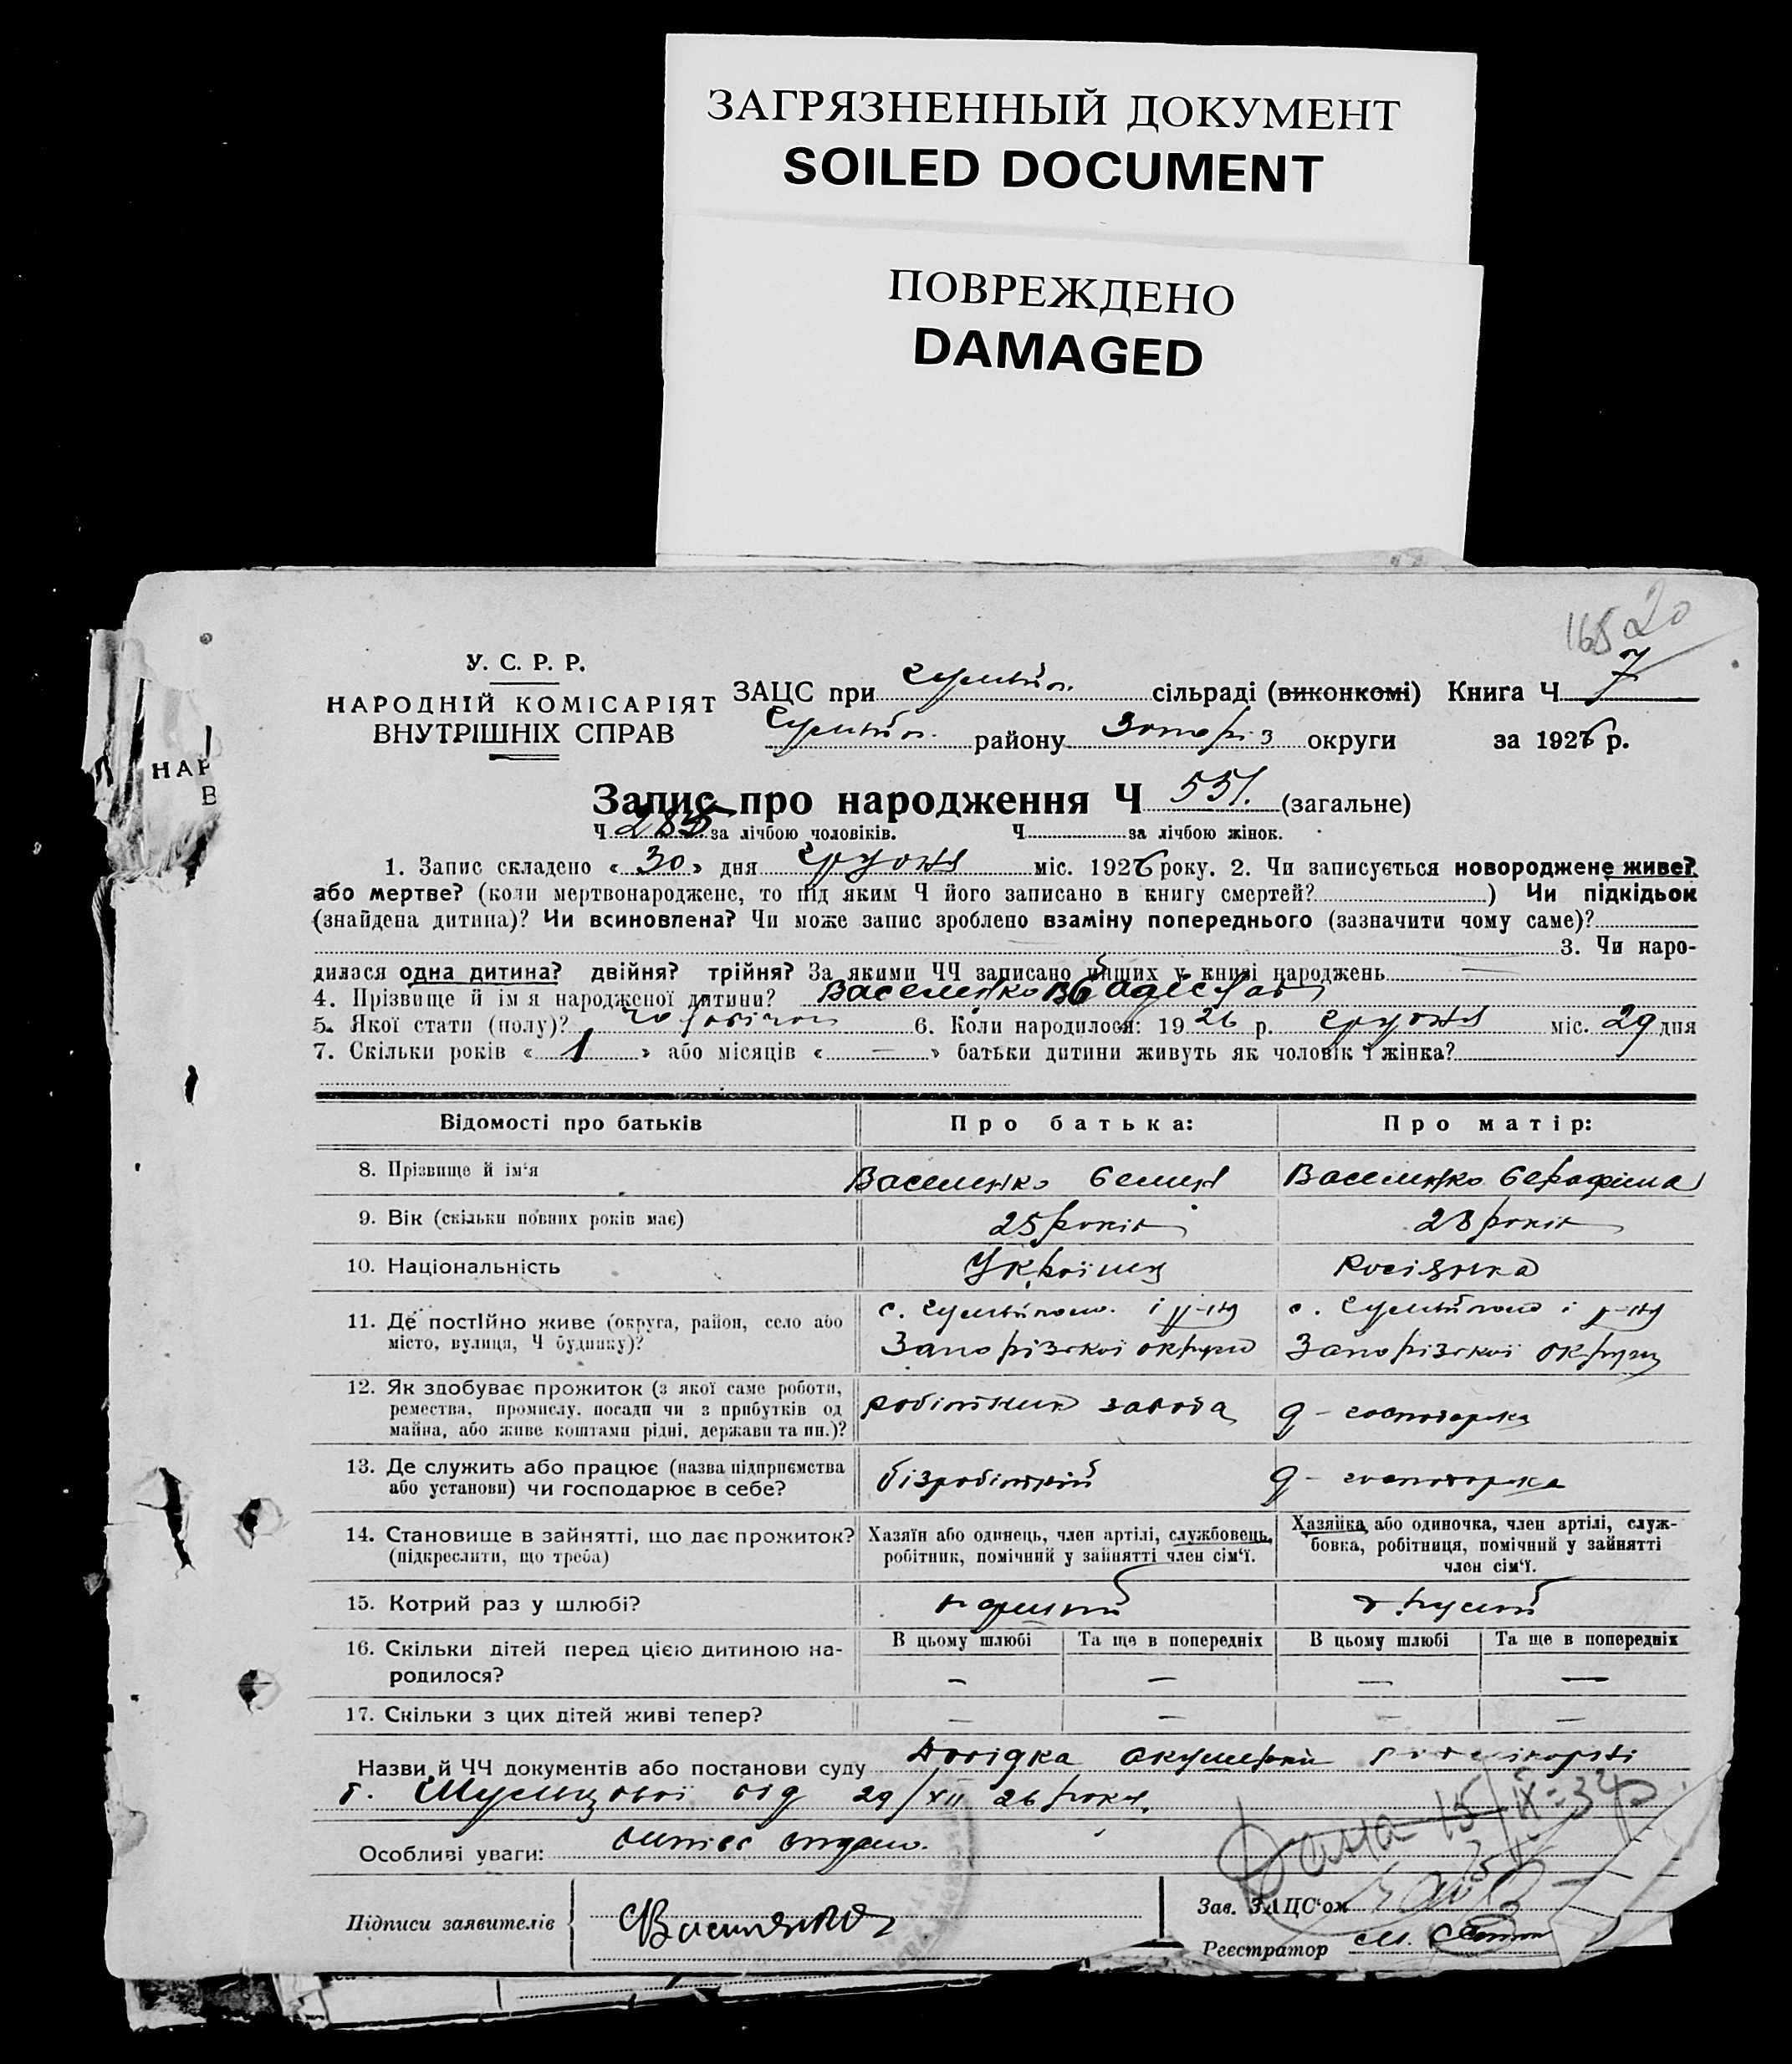 ЗАГРЯЗНЕННЫЙ ДОКУМЕНТ
SOILED DOCUMENT
ПОВРЕЖДЕНО
DAMAGED
165 20
У. С. Р. Р.
НАРОДНІЙ КОМІСАРІЯТ
ВНУТРІШНІХ СПРАВ
НАР
В
ЗАЦС при сільраді (виконкомі) Книга Ч 7
району Запоріз округи за 1926 р.
Запис про народження Ч 551. (загальне)
Ч 285 за лічбою чоловіків. Ч за лічбою жінок.
1. Запис складено « 30 » дня грудня міс. 1926 року. 2. Чи записується новороджене живе?
або мертве? (коли мертвонароджене, то під яким Ч його записано в книгу смертей? ) Чи підкідьок
(знайдена дитина)? Чи всиновлена? Чи може запис зроблено взаміну попереднього (зазначити чому саме)?
3. Чи наро-
дилася одна дитина? двійня? трійня? За якими ЧЧ записано інших у книзі народжень —
4. Прізвище й ім'я народженої дитини? Василенко Владіслав
5. Якої статі (полу)? чоловічої 6. Коли народилося: 19 26 р. грудня міс. 29 дня
7. Скільки років « 1 » або місяців « — » батьки дитини живуть як чоловік і жінка?
Відомості про батьків Про батька: Про матір:
8. Прізвище й ім'я Василенко Семен Василенко Серафима
9. Вік (скільки повних років має) 25 років 28 років
10. Національність Українец Росіянка
11. Де постійно живе (округа, район, село або с. Гуляйполе і р-ну с. Гуляйполе і р-ну
місто, вулиця, Ч будинку)? Запорізької округи Запорізької округи
12. Як здобуває прожиток (з якої саме роботи,
ремества, промислу, посади чи з прибутків од робітник завода д-господарка
майна, або живе коштами рідні, держави та ин.)?
13. Де служить або працює (назва підприємства
або установи) чи господарює в себе? бізробітний д-господарка
14. Становище в зайнятті, що дає прожиток? Хазяїн або одинець, член артілі, службовець, Хазяйка, або одиночка, член артілі, служ-
(підкреслити, що треба) робітник, помічний у зайнятті член сім'ї. бовка, робітниця, помічний у зайнятті
член сім'ї.
15. Котрий раз у шлюбі?
16. Скільки дітей перед цією дитиною на- В цьому шлюбі Та ще в попередніх В цьому шлюбі Та ще в попередніх
родилося? — — — —
17. Скільки з цих дітей живі тепер? — — — —
Назви й ЧЧ документів або постанови суду Довідка акушерки
від 29/XII 26 року.
Особливі уваги: видано.
15/IX-34
Підписи заявителів Василенко Зав. ЗАЦС'ом
Реєстратор